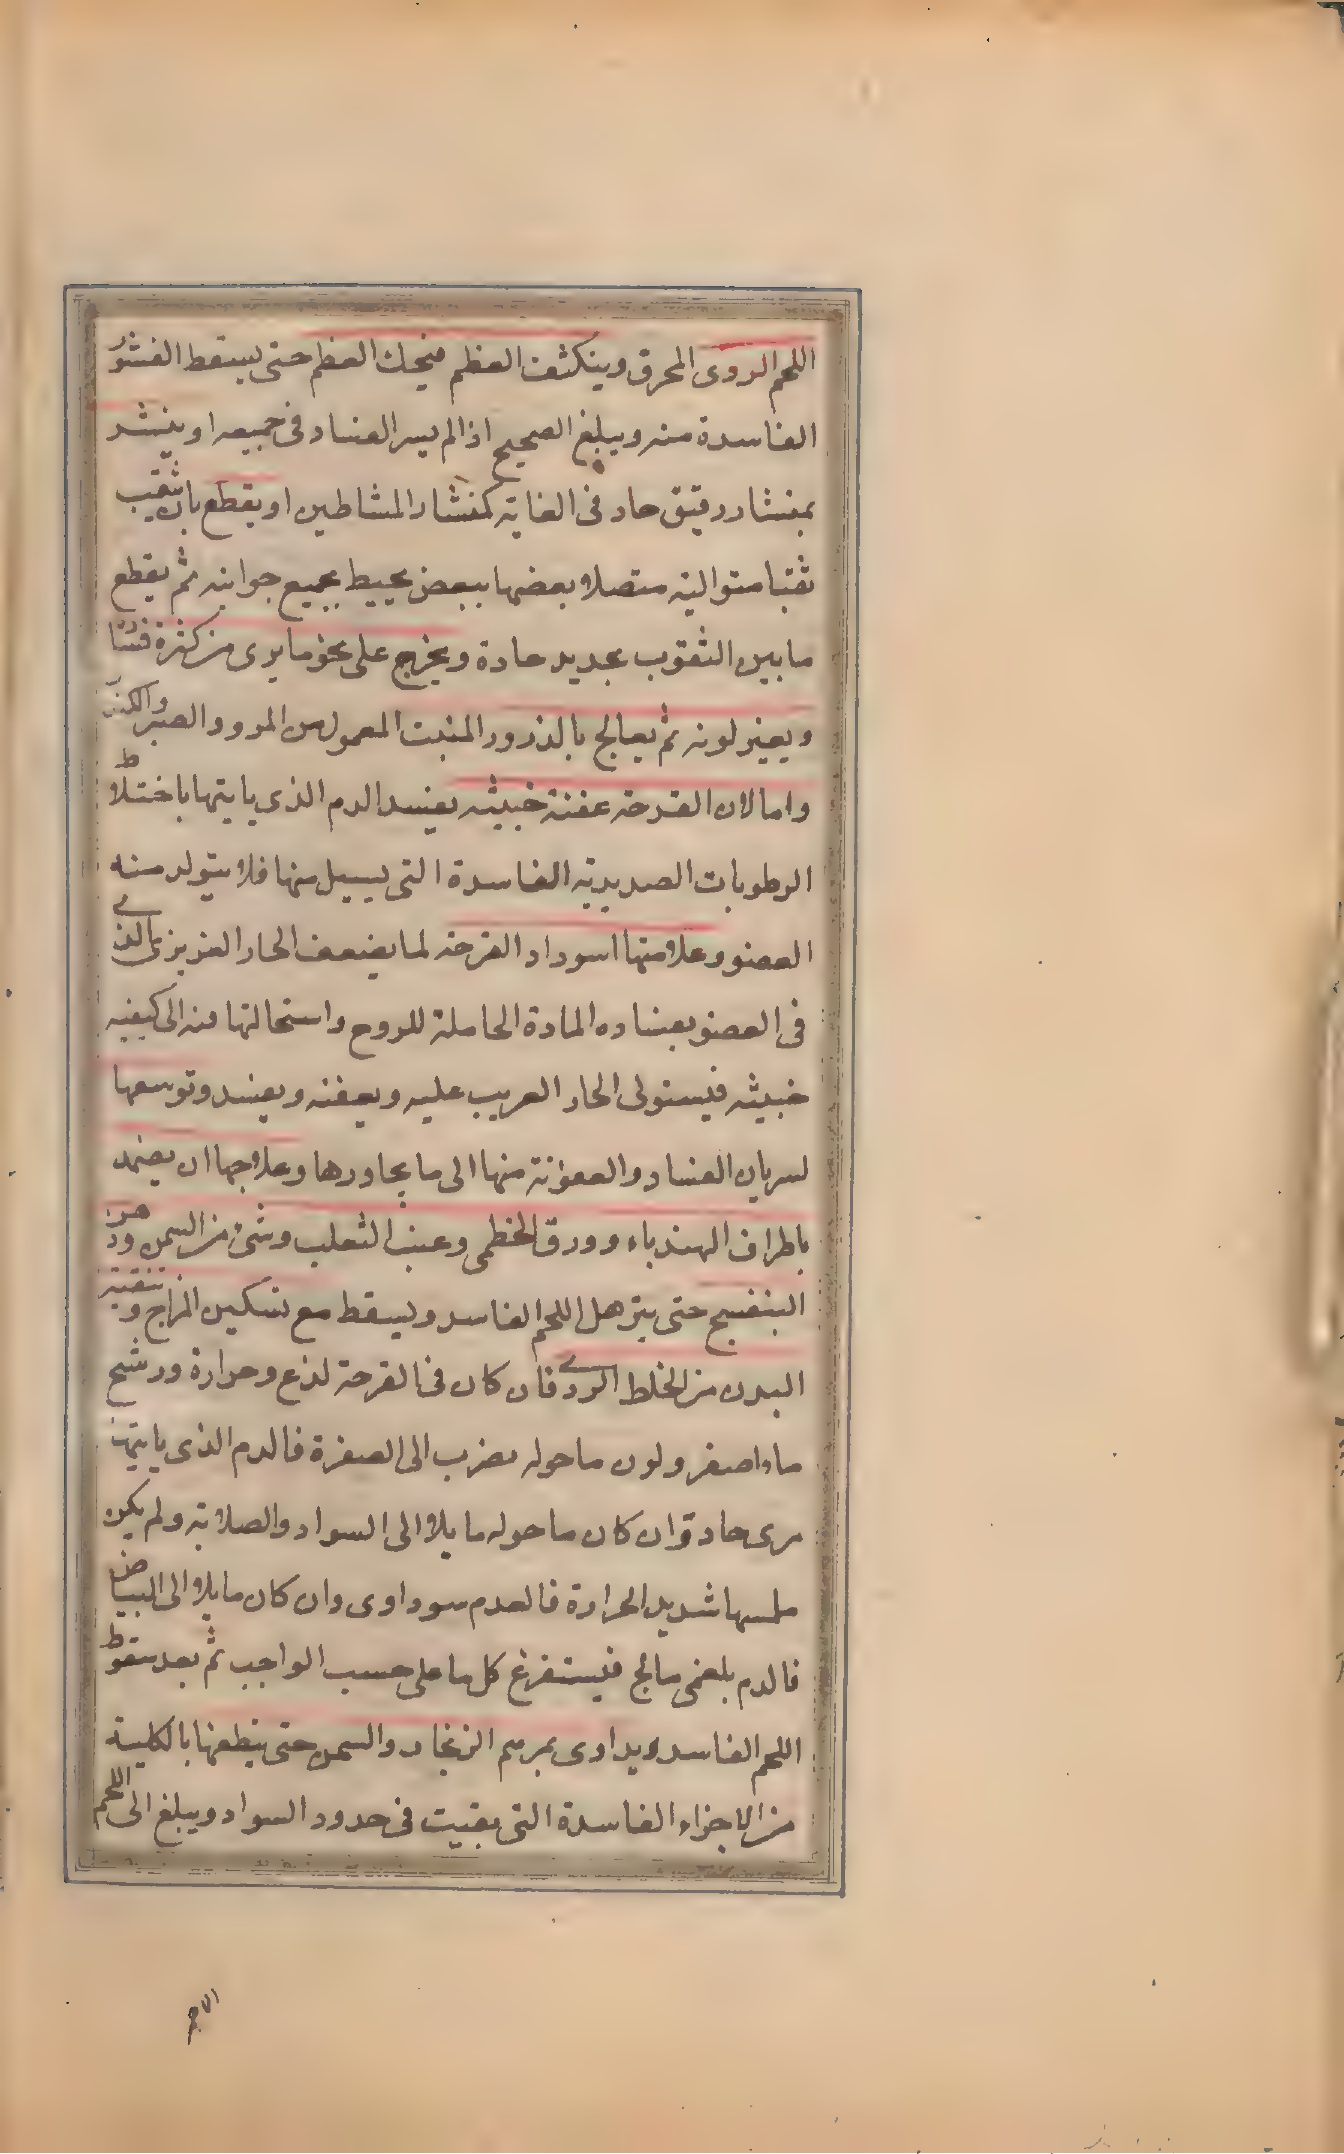 اللحم الردى المحرق وينكشف العظم فيحك العظم حتى يسقط القشور
الفاسدة منه ويبلغ الصحيح اذا لم يسر الفساد فى جميعه او ينشر
بمنشار دقيق حاد فى الغاية كمنشار المشاطين او يقطع بان يثقب
ثقبا متوالية متصلا بعضها ببعض يحيط بجميع جوانبه ثم يقطع
ما بين الثقوب بحديد حادة ويخرج على نحو ما يرى من كثرة فسا
ويغير لونه ثم يعالج بالذرور المنبت المعمول من المر والصبر والكندر
واما لان القرحة عفنة خبيثه يفسد الدم الذى ياتيها باختلاط
الرطوبات الصديدية الفاسدة التى يسيل منها فلا يتولد منه
العضو وعلامتها اسوداد القرحة لما يضعف الحار الغريزى الذى
فى العضو بفساده المادة الحاملة للروح واستحالتها منه الى كيفية
خبيثه فيستولى الحار الغريب عليه ويعفنه ويفسد وتوسعها
لسريان الفساد والعفونة منها الى ما يجاورها وعلاجها ان يضمد
باطراف الهندباء وورق الخطمى وعنب الثعلب وشئ من السمن ودهن
البنفسج حتى يترهل اللحم الفاسد ويسقط مع تسكين المزاج وتنقية
البدن من الخلط الردى فان كان فى القرحة لذع وحرارة ورشح
ماء اصفر ولون ما حوله يضرب الى الصفرة فالدم الذى ياتيها
مرى حاد وان كان ما حوله مايلا الى السواد والصلابة ولم يكن
ملمسها شديد الحرارة فالدم سوداوى وان كان مايلا الى البياض
فالدم بلغمى مالح فيستفرغ كل ما على حسب الواجب ثم بعد سقوط
اللحم الفاسد يداوى بمرهم الزنجار والسمن حتى ينظفها بالكلية
من الاجزاء الفاسدة التى بقيت فى حدود السواد ويبلغ الى اللحم